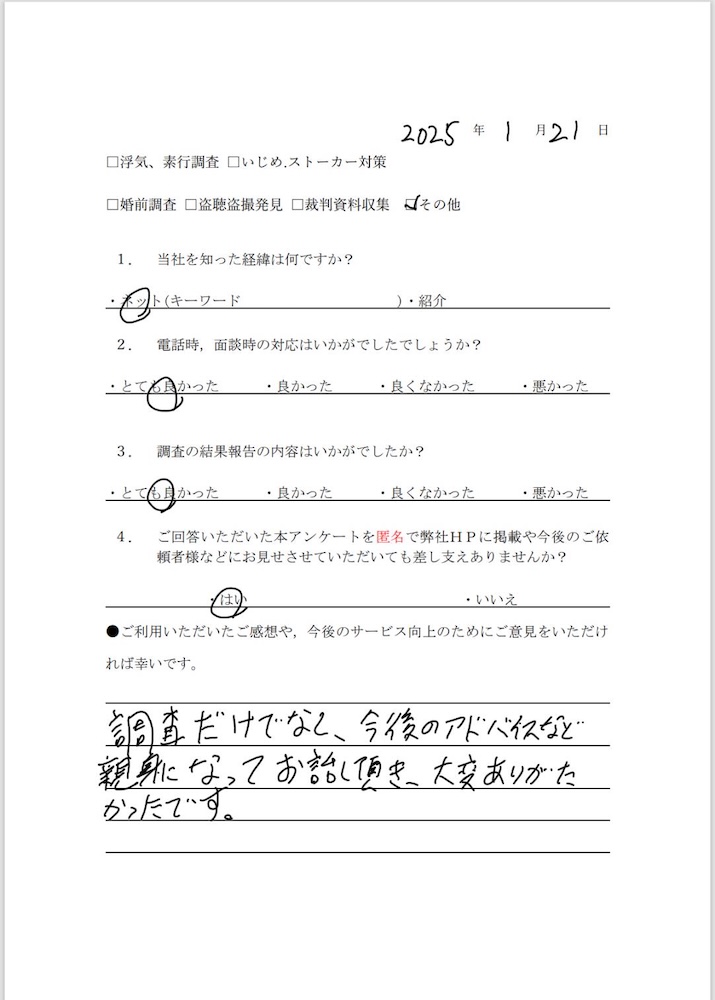 2025 年 1 月 21 日
□浮気、素行調査 □いじめ.ストーカー対策
□婚前調査 □盗聴盗撮発見 □裁判資料収集 ☑その他
１． 当社を知った経緯は何ですか？
・ネット(キーワード ）・紹介
２． 電話時，面談時の対応はいかがでしたでしょうか？
・とても良かった ・良かった ・良くなかった ・悪かった
３． 調査の結果報告の内容はいかがでしたか？
・とても良かった ・良かった ・良くなかった ・悪かった
４． ご回答いただいた本アンケートを匿名で弊社ＨＰに掲載や今後のご依
頼者様などにお見せさせていただいても差し支えありませんか？
・はい ・いいえ
●ご利用いただいたご感想や，今後のサービス向上のためにご意見をいただけ
れば幸いです。
調査だけでなく、今後のアドバイスなど
親身になってお話し頂き、大変ありがた
かったです。